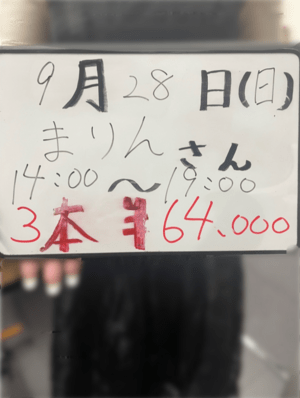 9月28日(日)
まりんさん
14:00〜19:00
3本 ¥64,000